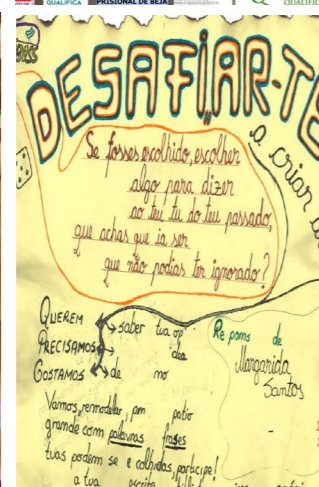 QUALIFICA
PRISIONAL DE BEJA
QUALIFIC
DESAFIAR-TE
a criar
Se fosses escolhido, escolher
algo para dizer
ao teu tu do teu passado,
que achas que ia ser
que não podias ter ignorado?
QUEREM
PRECISAMOS
GOSTAMOS
saber tua op
dea
de mo
Re poms de
Margarida
Santos
Vamos, remodelar, pm patio
grande com palavras frases
tuas podem se e colhidas, participe!
a tua escrita